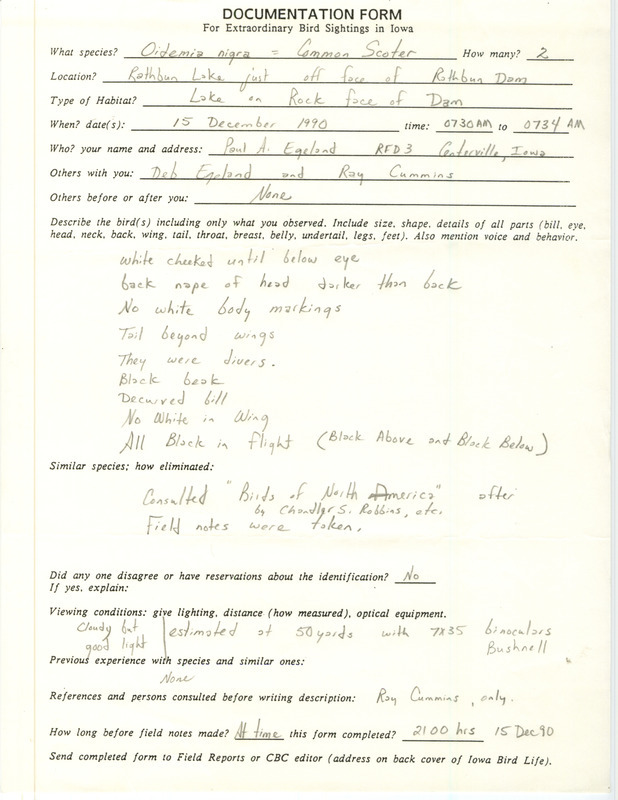 DOCUMENTATION FORM
For Extraordinary Bird Sightings in Iowa
What species? Oidemia nigra = Common Scoter How many? 2
Location? Rathbun Lake just off face of Rathbun Dam
Type of Habitat? Lake on Rock face of Dam
When? date(s): 15 December 1990 time: 0730 AM to 0734 AM
Who? your name and address: Paul A. Egeland RFD 3 Centerville, Iowa
Others with you: Deb Egeland and Ray Cummins
Others before or after you: None
Describe the bird(s) including only what you observed. Include size, shape, details of all parts (bill, eye,
head, neck, back, wing, tail, throat, breast, belly, undertail, legs, feet). Also mention voice and behavior.
white cheeked until below eye
back nape of head darker than back
No white body markings
Tail beyond wings
They were divers.
Black beak
Decurved bill
No White in Wing
All Black in flight (Black Above and Black Below)
Similar species; how eliminated:
Consulted "Birds of North America" after
by Chandler S. Robbins, etc.
Field notes were taken.
Did any one disagree or have reservations about the identification? No
If yes, explain:
Viewing conditions: give lighting, distance (how measured), optical equipment.
Cloudy but estimated at 50 yards with 7X35 binoculars
good light Bushnell
Previous experience with species and similar ones:
None
References and persons consulted before writing description: Ray Cummins, only.
How long before field notes made? At time this form completed? 2100 hrs 15 Dec 90
Send completed form to Field Reports or CBC editor (address on back cover of Iowa Bird Life).